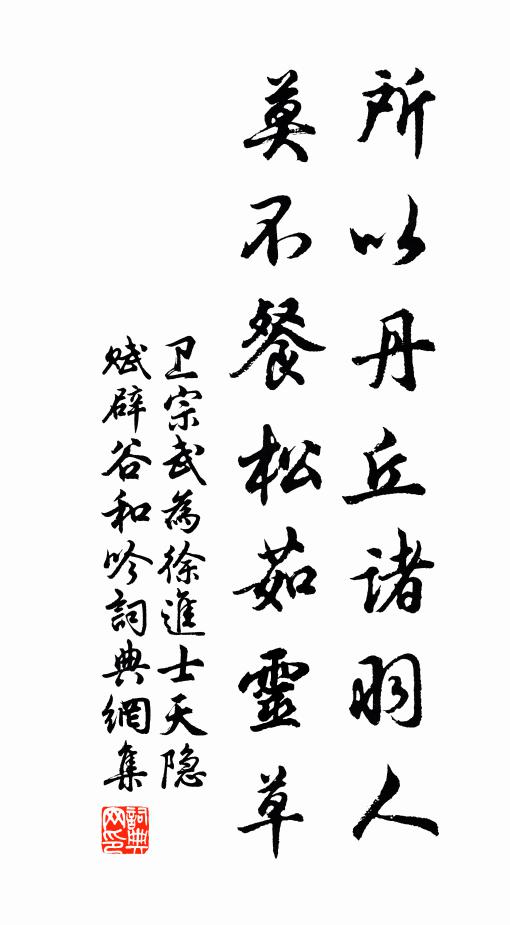 所以丹丘諸羽人
莫不餐松茹靈草
卫宗武為徐進士天隐
賦辟谷和吟詞典網集
詞典网印